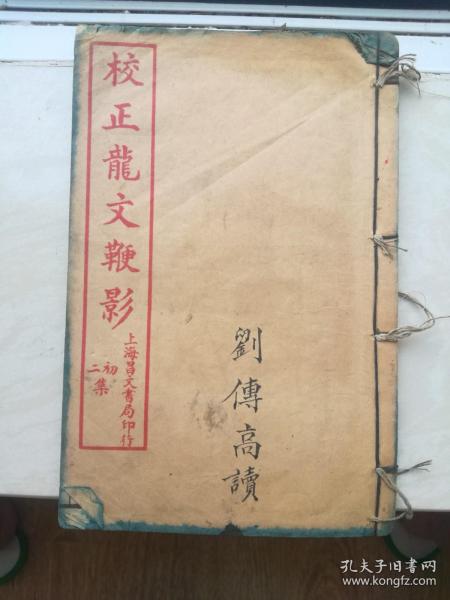 校正龍文鞭影
初二集
上海昌文書局印行
劉傳高讀
孔夫子旧书网
www.kongfz.com